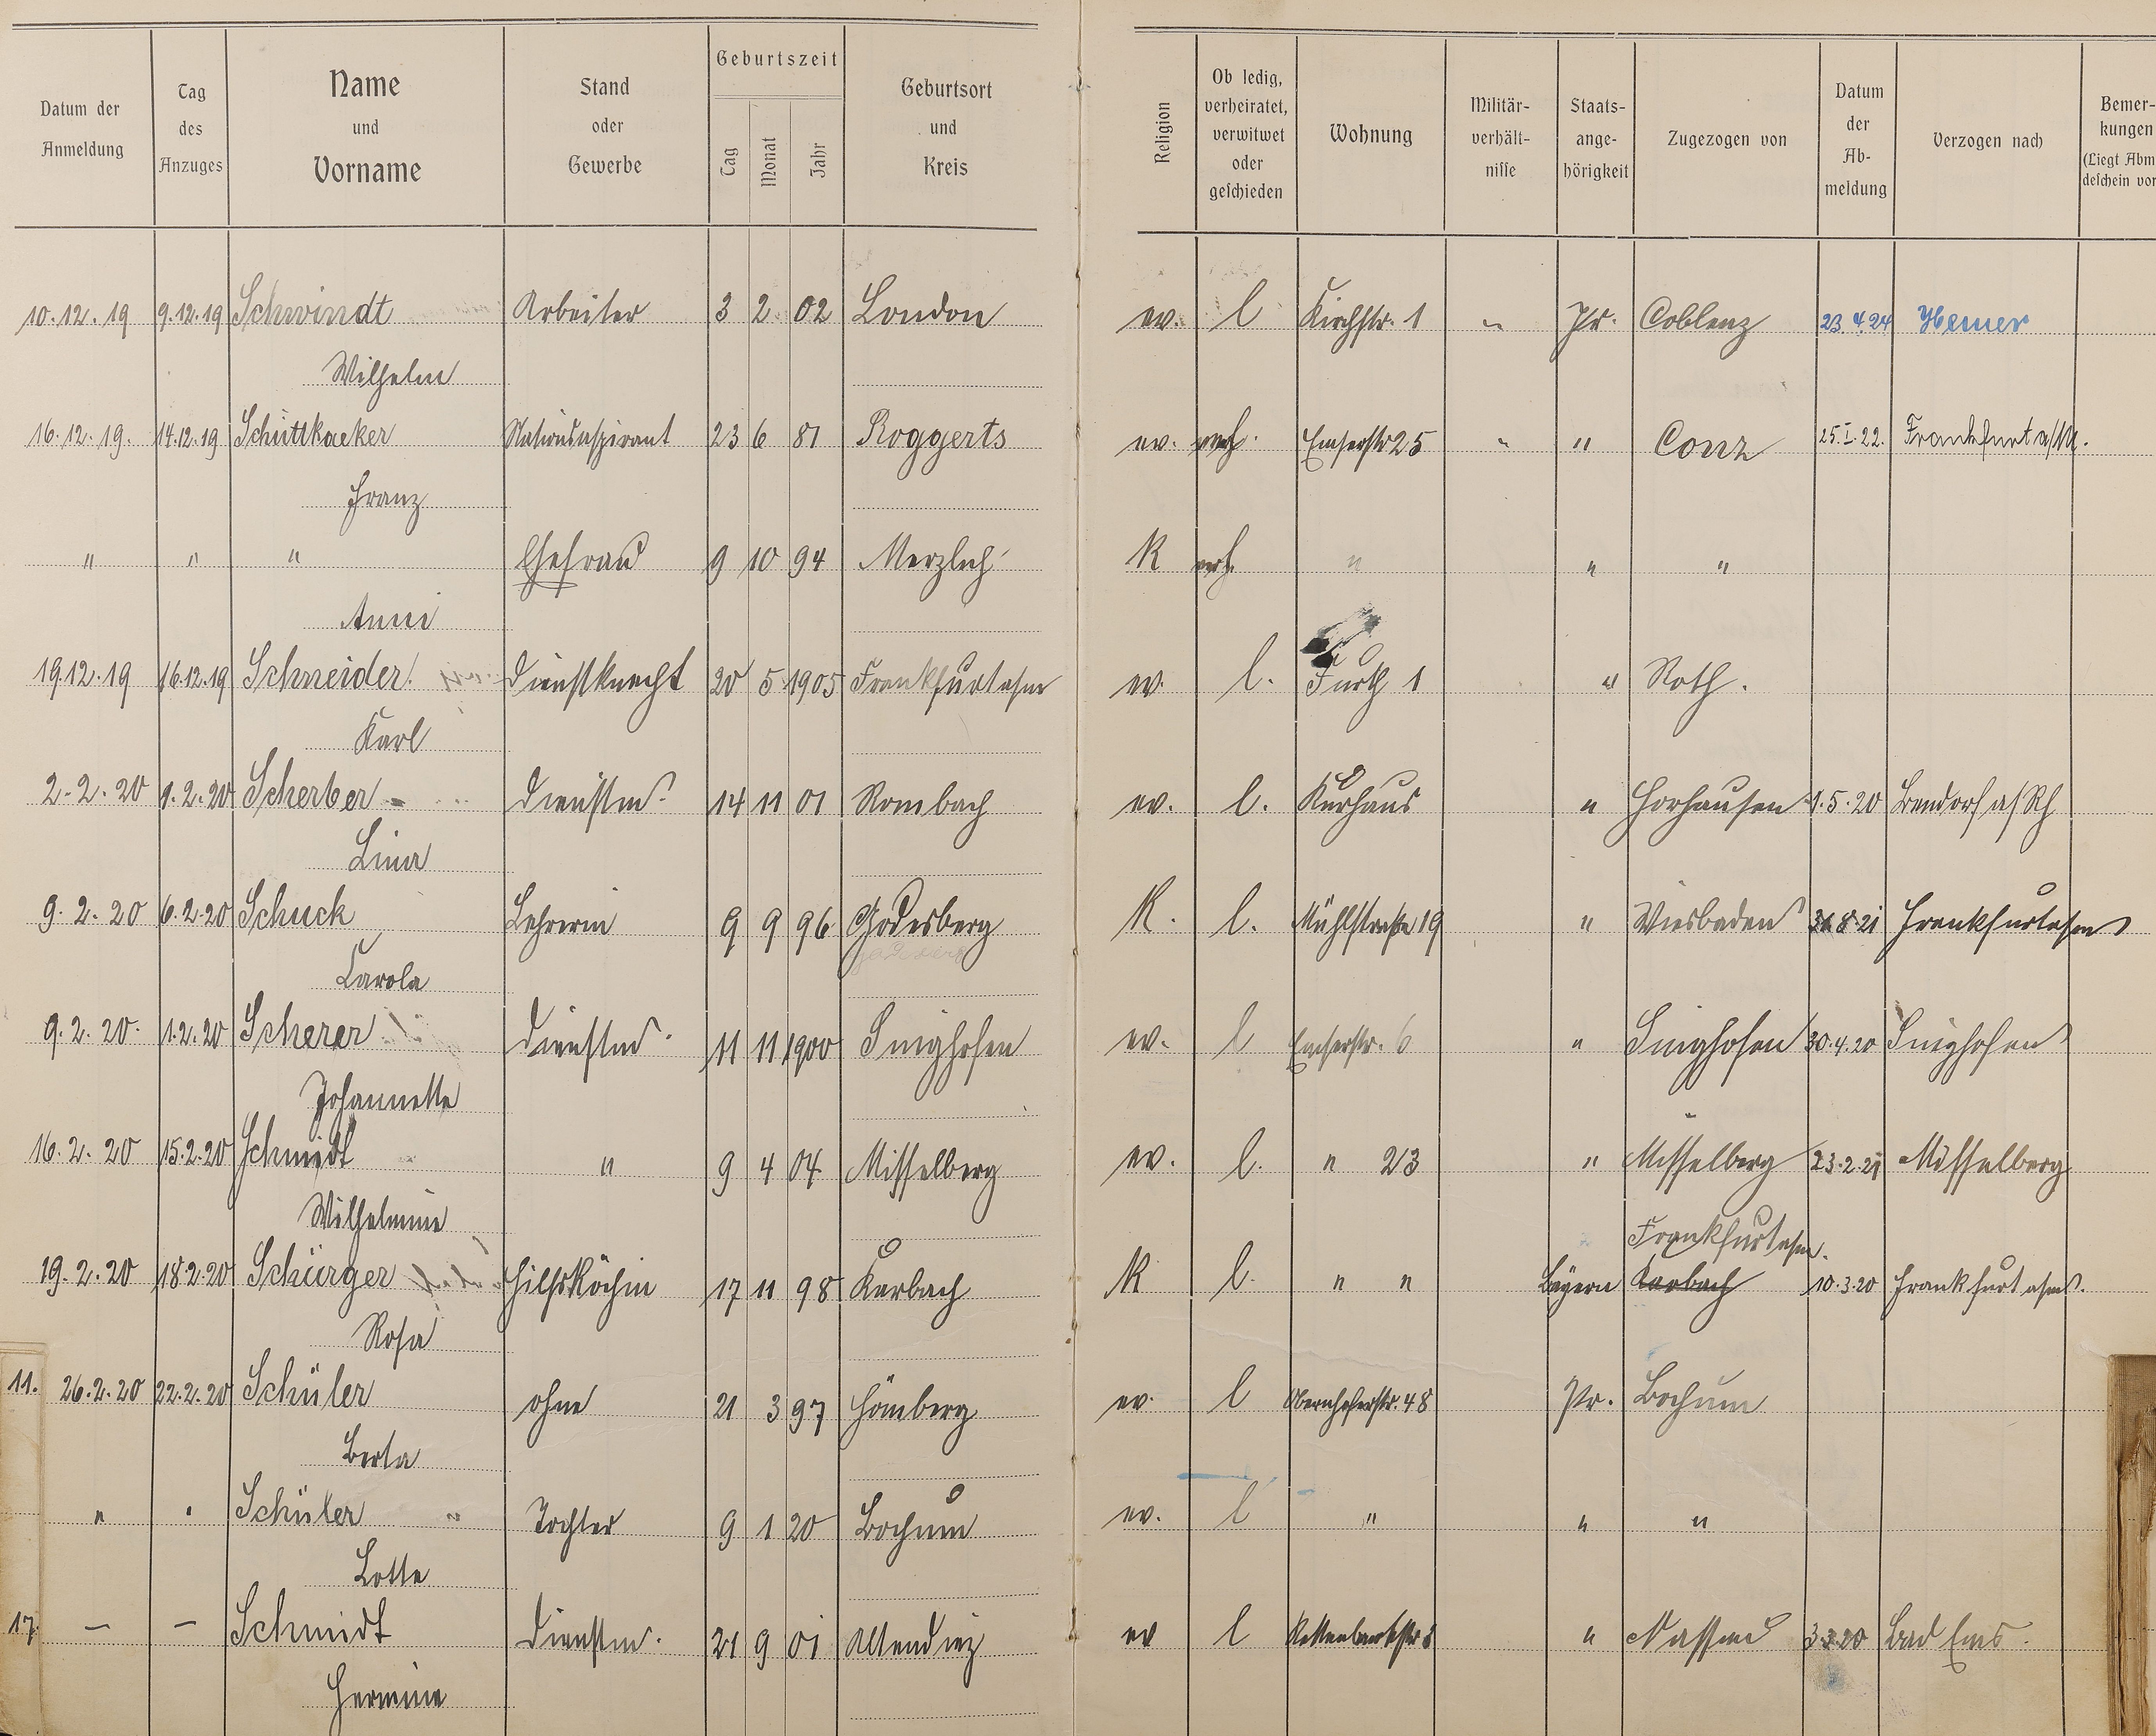 Datum der Anmeldung | Tag des Anzuges | Name und Vorname | Stand oder Gewerbe | Geburtszeit Tag Monat Jahr | Geburtsort und Kreis | Religion | Ob ledig, verheiratet, verwitwet oder geschieden | Wohnung | Militär-verhält-nisse | Staats-ange-hörigkeit | Zugezogen von | Datum der Ab-meldung | Verzogen nach | Bemer-kungen (Liegt Abm deschein vor
10.12.19 9.12.19 Schwindt Arbeiter 3 2 02 London ev. l Kirchstr. 1 " Pr. Coblenz 23.4.24 Hemer
Wilhelm
16.12.19. 14.12.19 Schüttkaeker 23 6 81 Roggerts ev. verh. Emserstr 25 " " Conz 25.I.22. Frankfurt a/M.
Franz
" " " Ehefrau 9 10 94 Merzlich K verh. " " "
Anni
19.12.19 16.12.19 Schneider Dienstknecht 20 5 1905 Frankfurt a/m ev. l. 1 " Roth.
Karl
2.2.20 1.2.20 Scherber Dienstm. 14 11 01 Rombach ev. l. Kurhaus " Horhausen 1.5.20 Bendorf a/Rh
Lina
9.2.20 6.2.20 Schuck Lehrerin 9 9 96 Godesberg K. l. Mühlstraße 19 " Wiesbaden 8.21 Frankfurt a/m
Carola
9.2.20. 1.2.20 Scherer Dienstm. 11 11 1900 Singhofen ev. l Emserstr. 6 " Singhofen 30.4.20 Singhofen
Johannette
16.2.20 15.2.20 Schmidt " 9 4 04 Misselberg ev. l. " 23 " Misselberg 23.2.21 Misselberg
Wilhelmine
Frankfurt a/m.
19.2.20 18.2.20 Schürger Hilfsköchin 17 11 98 Karbach K l. " " Bayern Karbach 10.3.20 Frankfurt a/m.
Rosa
11. 26.2.20 22.2.20 Schüler ohne 21 3 97 Hömberg ev. l Obernhoferstr. 48 Pr. Bochum
Berta
" " Schüler Tochter 9 1 20 Bochum ev. l " " "
Lotte
17. – – Schmidt Dienstm. 21 9 01 Altendiez ev l " Nassau 3.3.20 Bad Ems.
Hermine